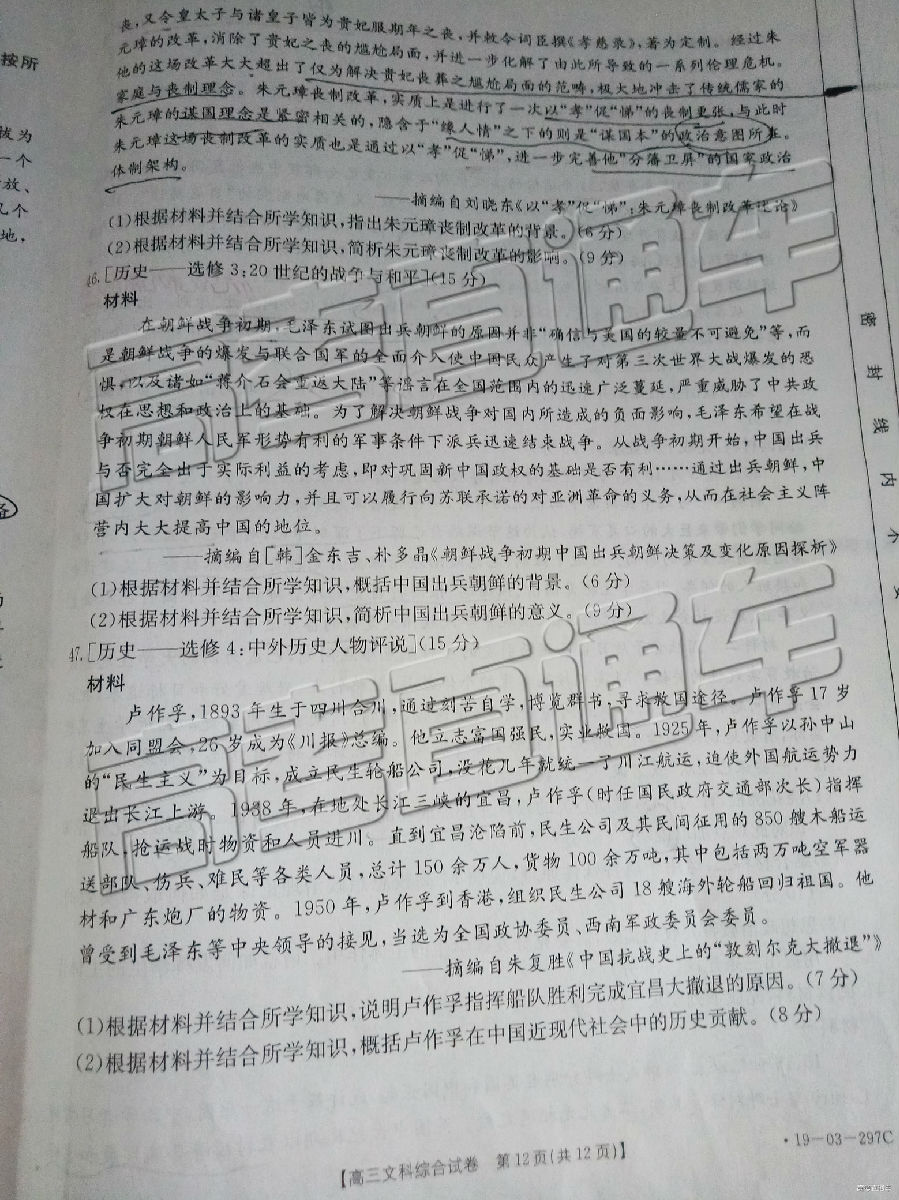 丧,又令皇太子与诸皇子皆为贵妃服期年之丧,并敕令词臣撰《孝慈录》,著为定制。经过朱
元璋的改革,消除了贵妃之丧的尴尬局面,并进一步化解了由此所导致的一系列伦理危机。
他的这场改革大大超出了仅为解决贵妃丧葬之尴尬局面的范畴,极大地冲击了传统儒家的
家庭与丧制理念。朱元璋丧制改革,实质上是进行了一次以“孝”促“悌”的丧制更张,与此时
朱元璋的谋国理念是紧密相关的,隐含于“缘人情”之下的则是“谋国本”的政治意图所在。
朱元璋这场丧制改革的实质也是通过以“孝”促“悌”,进一步完善他“分藩卫屏”的国家政治
体制架构。
——摘编自刘晓东《以“孝”促“悌”:朱元璋丧制改革述论》
(1)根据材料并结合所学知识,指出朱元璋丧制改革的背景。(6分)
(2)根据材料并结合所学知识,简析朱元璋丧制改革的影响。(9分)
46.[历史——选修3:20世纪的战争与和平](15分)
材料
在朝鲜战争初期,毛泽东试图出兵朝鲜的原因并非“确信与美国的较量不可避免”等,而
是朝鲜战争的爆发与联合国军的全面介入使中国民众产生了对第三次世界大战爆发的恐
惧,以及诸如“蒋介石会重返大陆”等谣言在全国范围内的迅速广泛蔓延,严重威胁了中共政
权在思想和政治上的基础。为了解决朝鲜战争对国内所造成的负面影响,毛泽东希望在战
争初期朝鲜人民军形势有利的军事条件下派兵迅速结束战争。从战争初期开始,中国出兵
与否完全出于实际利益的考虑,即对巩固新中国政权的基础是否有利……通过出兵朝鲜,中
国扩大对朝鲜的影响力,并且可以履行向苏联承诺的对亚洲革命的义务,从而在社会主义阵
营内大大提高中国的地位。
——摘编自[韩]金东吉、朴多晶《朝鲜战争初期中国出兵朝鲜决策及变化原因探析》
(1)根据材料并结合所学知识,概括中国出兵朝鲜的背景。(6分)
(2)根据材料并结合所学知识,简析中国出兵朝鲜的意义。(9分)
47.[历史——选修4:中外历史人物评说](15分)
材料
卢作孚,1893年生于四川合川,通过刻苦自学,博览群书,寻求救国途径。卢作孚17岁
加入同盟会,26岁成为《川报》总编。他立志富国强民,实业救国。1925年,卢作孚以孙中山
的“民生主义”为目标,成立民生轮船公司,没花几年就统一了川江航运,迫使外国航运势力
退出长江上游。1938年,在地处长江三峡的宜昌,卢作孚(时任国民政府交通部次长)指挥
船队,抢运战时物资和人员进川。直到宜昌沦陷前,民生公司及其民间征用的850艘木船运
送部队、伤兵、难民等各类人员,总计150余万人,货物100余万吨,其中包括两万吨空军器
材和广东炮厂的物资。1950年,卢作孚到香港,组织民生公司18艘海外轮船回归祖国。他
曾受到毛泽东等中央领导的接见,当选为全国政协委员、西南军政委员会委员。
——摘编自朱复胜《中国抗战史上的“敦刻尔克大撤退”》
(1)根据材料并结合所学知识,说明卢作孚指挥船队胜利完成宜昌大撤退的原因。(7分)
(2)根据材料并结合所学知识,概括卢作孚在中国近现代社会中的历史贡献。(8分)
【高三文科综合试卷 第12页(共12页)】
·19-03-297C
按所
拔为
一个
放、
几个
地,
密
封
线
内
不
高考直通车
高考直通车